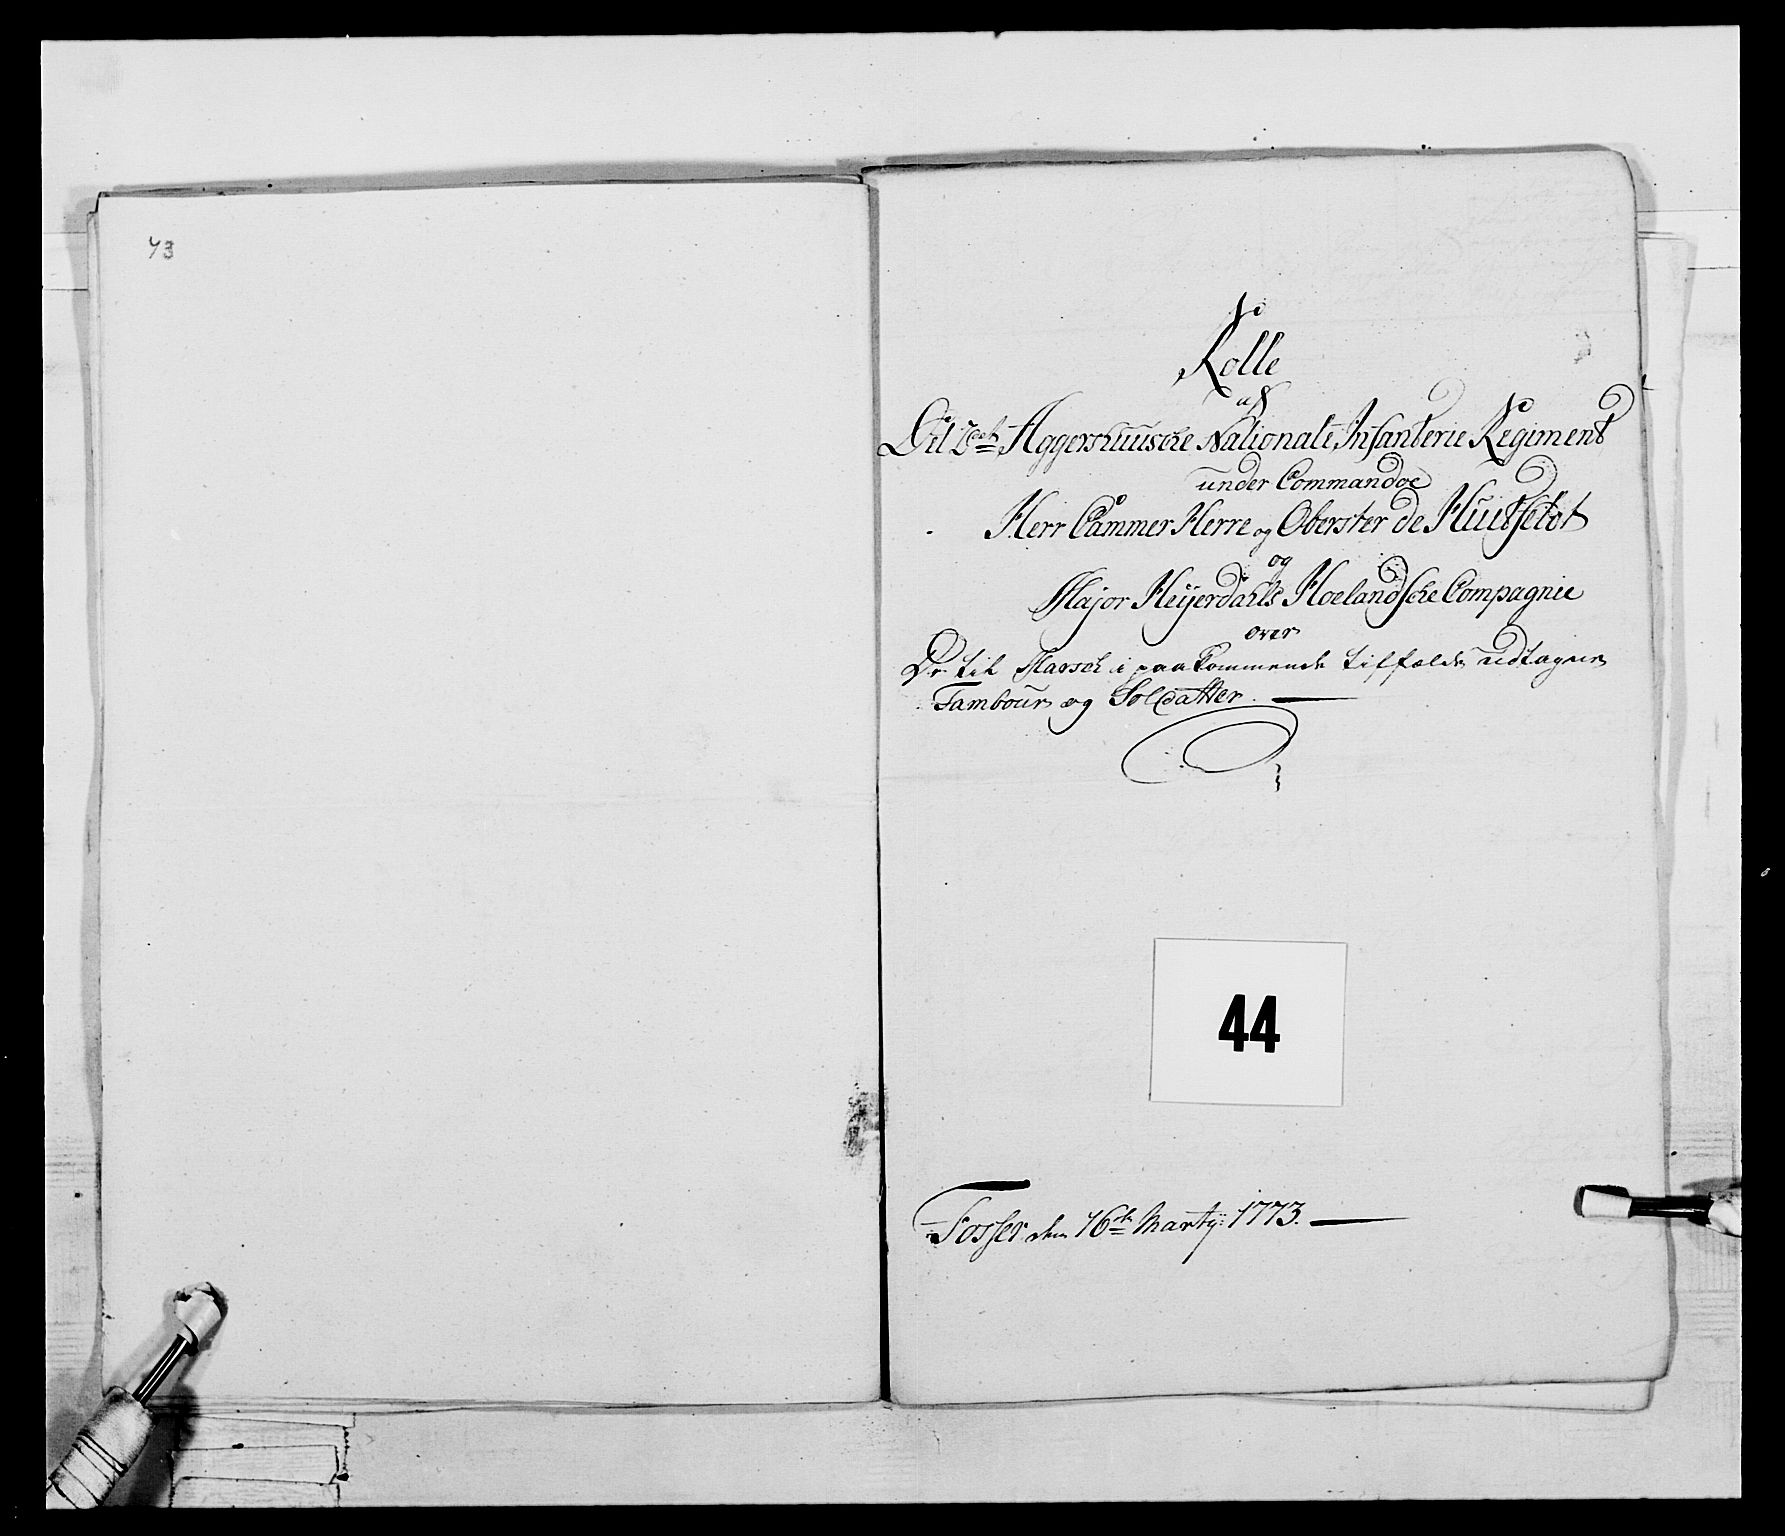 43
Rolle
af
Det 2det Aggershuusche Nationale Infanterie Regiment
under Commandoe
Herr Cammer Herre og Oberster de Huitfeldt
og
Major Heÿerdahls Hoelandsche Compagnie
over
De til Marsch i paakommende tilfælde udtagne
Tambour og Soldatter.
44
Fosser den 16de Marty: 1773.